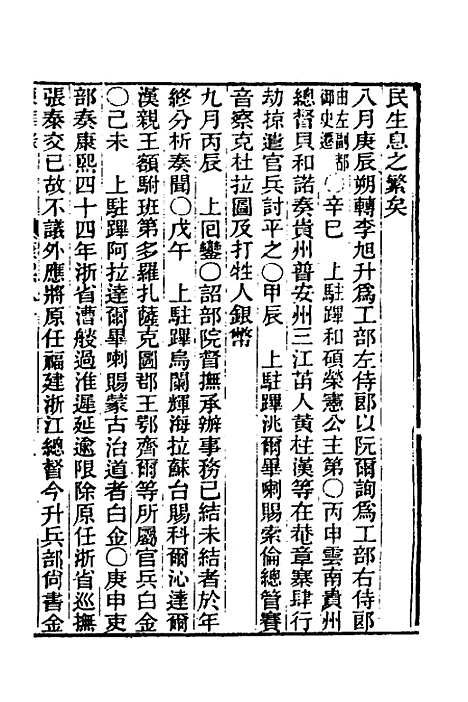 民生息之繁矣
八月庚辰朔轉李旭升爲工部左侍郎以阮爾詢爲工部右侍郎
由左副都御史遷〇辛巳　上駐蹕和碩榮憲公主第〇丙申雲南貴州
總督貝和諾奏貴州普安州三江苗人黃柱漢等在菴章寨肆行
劫掠遣官兵討平之〇甲辰　上駐蹕洮爾畢喇賜索倫總管賽
音察克杜拉圖及打牲人銀幣
九月丙辰　上回鑾〇詔部院督撫承辦事務已結未結者於年
終分析奏聞〇戊午　上駐蹕烏闌輝海拉蘇台賜科爾沁達爾
漢親王額駙班第多羅扎薩克圖郡王鄂齊爾等所屬官兵白金
〇己未　上駐蹕阿拉達爾畢喇賜蒙古治道者白金〇庚申吏
部奏康熙四十四年浙省漕艘過淮遲延逾限除原任浙省巡撫
張泰交已故不議外應將原任福建浙江總督今升兵部尙書金